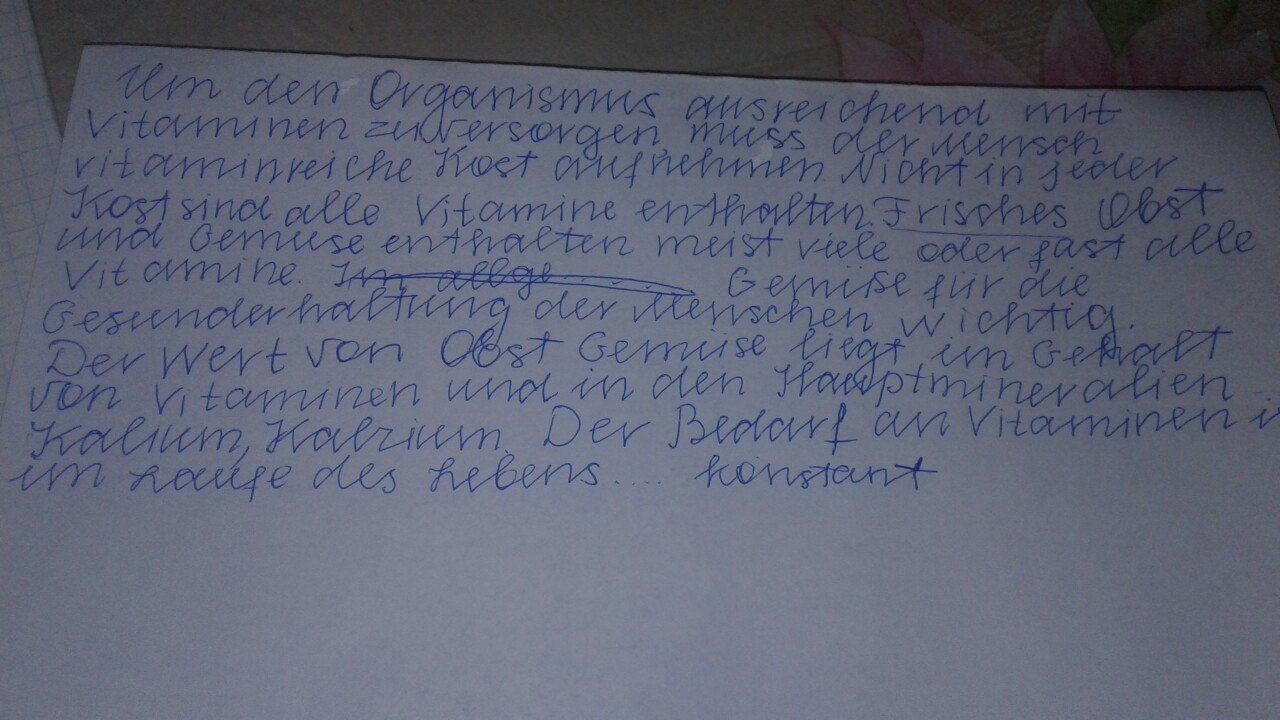 Um den Organismus ausreichend mit
Vitaminen zu versorgen, muss der Mensch
vitaminreiche Kost aufnehmen. Nicht in jeder
Kost sind alle Vitamine enthalten. Frisches Obst
und Gemüse enthalten meist viele oder fast alle
Vitamine. Im allge... Gemüse für die
Gesunderhaltung der Menschen wichtig.
Der Wert von Obst Gemüse liegt im Gehalt
von Vitaminen und in den Hauptmineralien
Kalium, Kalzium. Der Bedarf an Vitaminen i
im Laufe des Lebens.... konstant